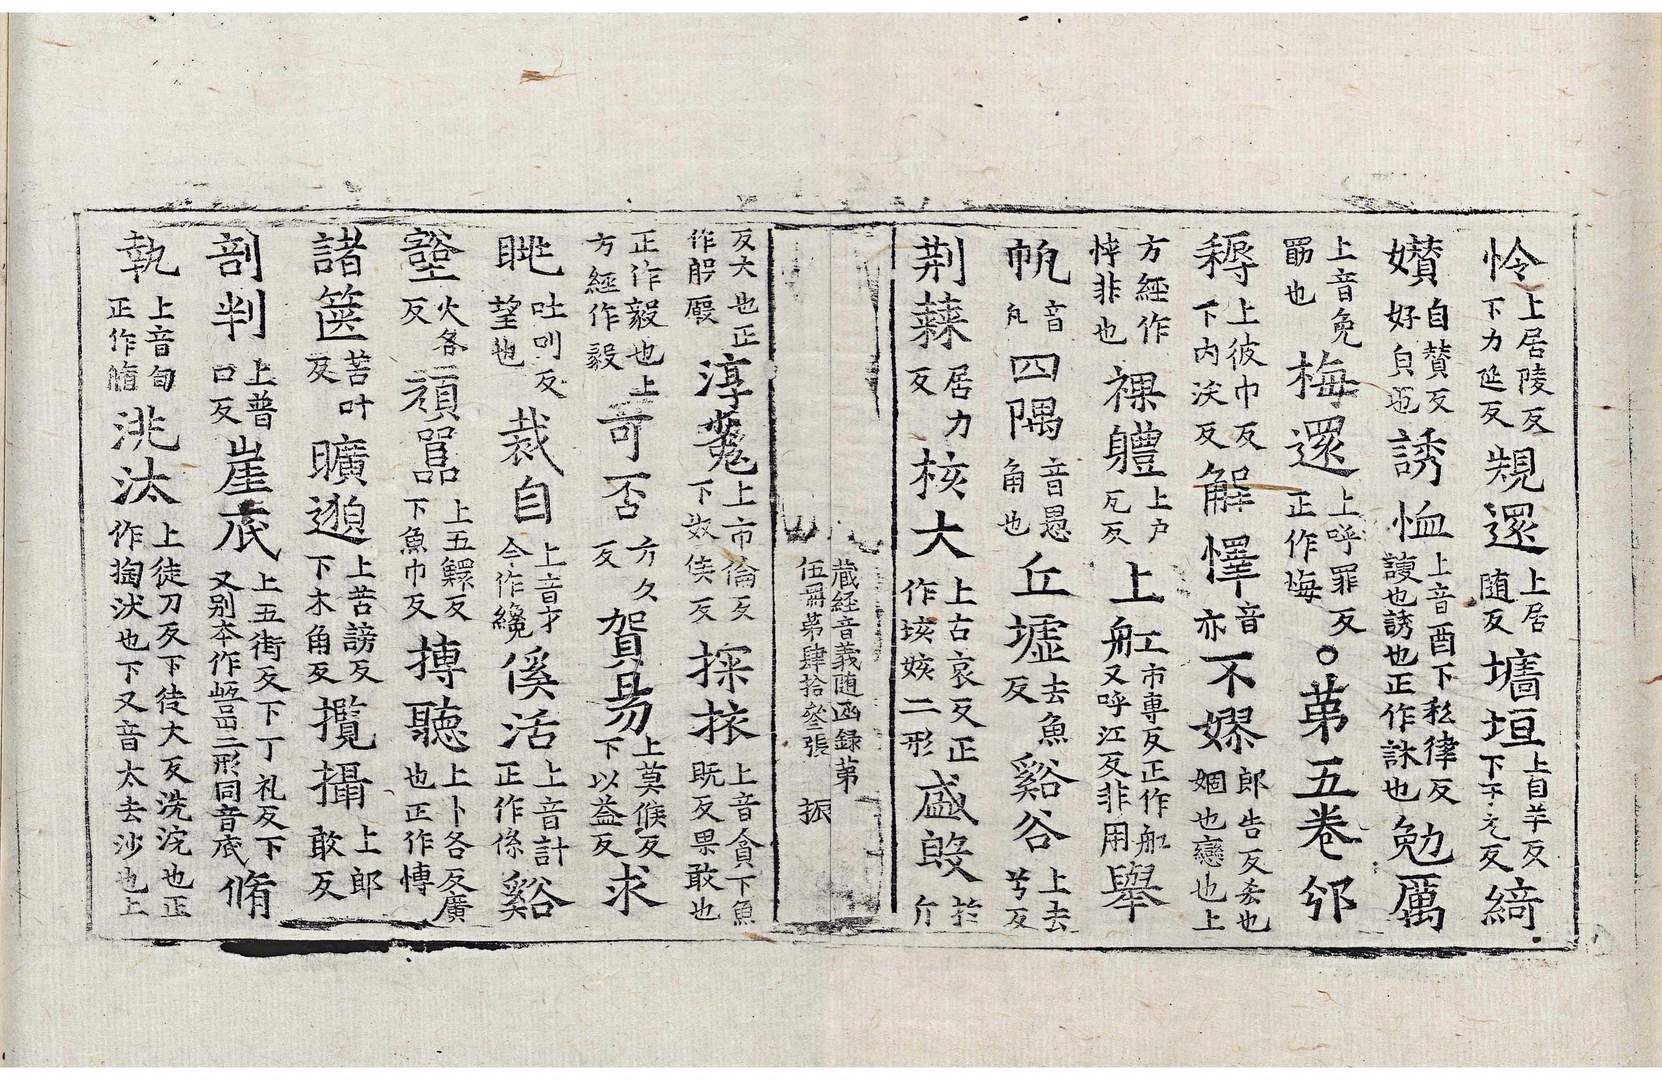 怜上居陵反下力延反規還上居随反墻垣上自羊反下于元反綺
嬪自賛反好皃也誘恤上音酉下私律反謏也誘也正作訹也勉厲
上音免罰也梅還上呼罪反正作悔〇苐五卷邠
上彼巾反下内沃反解懌音亦不嫪郎告反恡也婟也戀也上
方經作悴非也裸軆上户瓦反上舡上市專反正作船又呼江反非用舉
帆音凡四隅音愚角也丘墟去魚反谿谷上去兮反
荆蕀居力反核大上古哀反正作垓姟二形盛
蔵經音義随函録苐伍冊苐肆拾叄張 振
反大也正作𦨣廄淳上市倫反下奴侯反探上音貪下魚既反果敢也
正作毅也上方經作毅可否方久反貿易上莫候反下以益反求
眺吐吅反望也裁自上音才今作纔傒活上音計正作係谿
壑火各反頑嚚上五鰥反下魚巾反搏聽上卜各反廣也正作博
諸篋苦叶反曠邈上苦謗反下木角反攬攝上郎敢反
剖判上普口反崖底上五街反下丁礼反下又别夲作㟁二形同音底脩
執上音旬正作隋洮汰上徒刀反下徒大反洗浣也正作掏汱也下又音太去沙也上